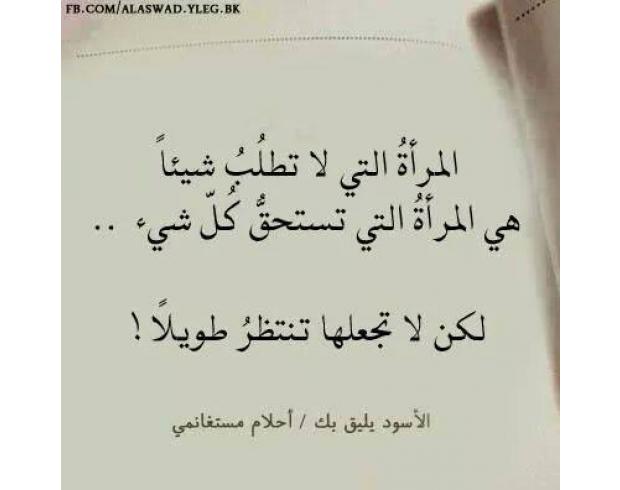 FB.COM/ALASWAD.YLEG.BK
المرأةُ التي لا تطلُبُ شيئاً
هي المرأةُ التي تستحقُّ كُلّ شيء ..
لكن لا تجعلها تنتظرُ طويلاً !
الأسود يليق بك / أحلام مستغانمي